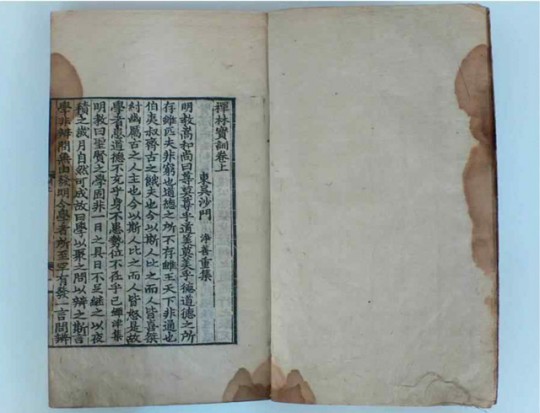 禪林寶訓卷上
東吳沙門 淨善重集
明教嵩和尚曰尊莫尊乎道美莫美乎德道德之所
存雖匹夫非窮也道德之所不存雖王天下非通也
伯夷叔齊古之餓夫也今以斯人比之而人皆喜桀
紂幽厲古之人主也今以斯人比之而人皆怒是故
學者患道德不充乎身不患勢位不在乎己鐔津集
明教曰聖賢之學固非一日之具日不足繼之以夜
積之歲月自然可成故曰學以聚之問以辨之斯言
學非辨問無由發明今學者所至罕有發一言問辨